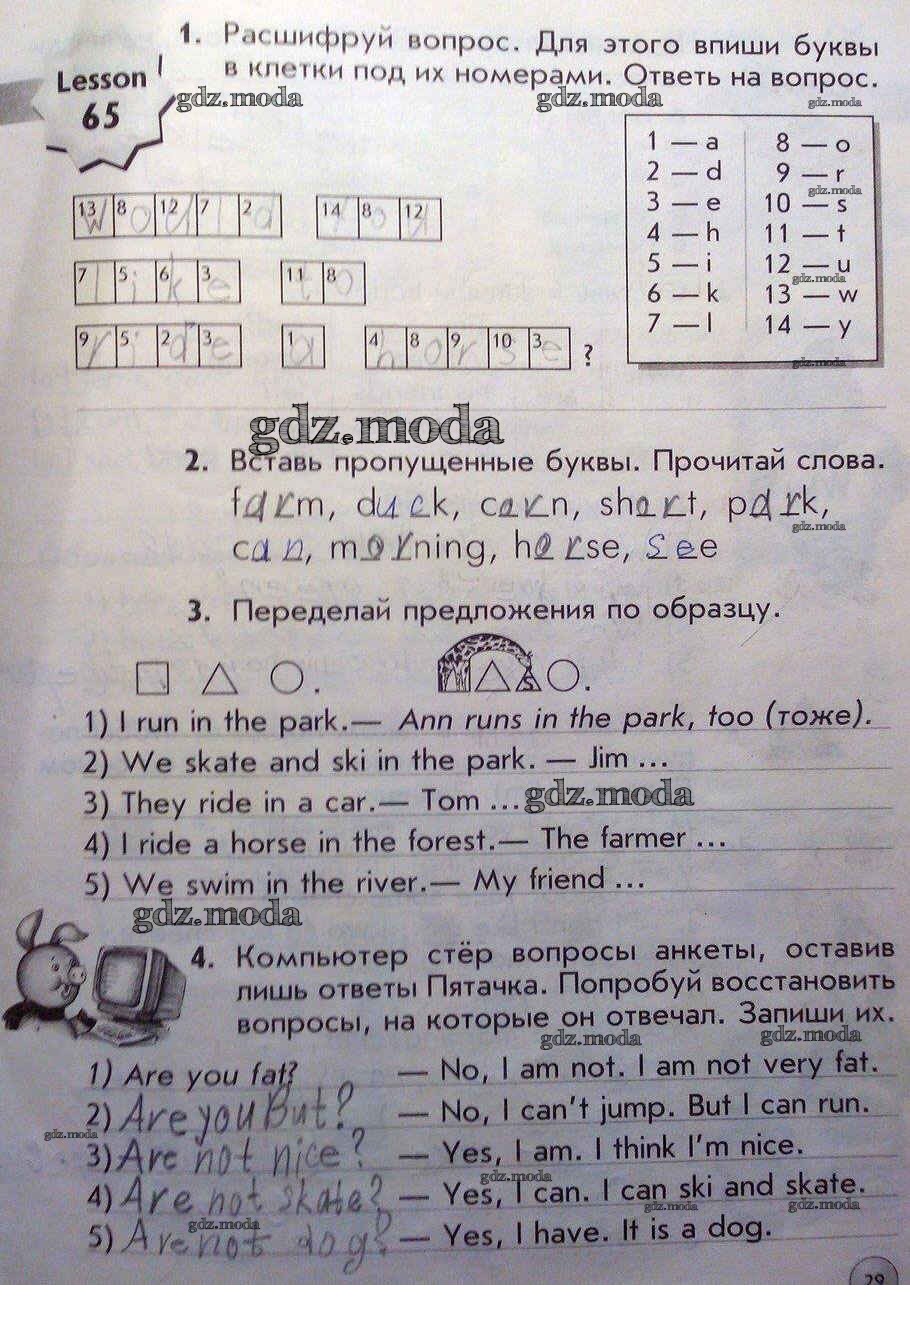 1. Расшифруй вопрос. Для этого впиши буквы
в клетки под их номерами. Ответь на вопрос.
Lesson
65
gdz.moda gdz.moda gdz.moda
1 — a 8 — o
2 — d 9 — r
gdz.moda
3 — e 10 — s
4 — h 11 — t
5 — i 12 — u
gdz.moda
6 — k 13 — w
7 — l 14 — y
gdz.moda
13 8 12 7 2 14 8 12
would you
7 5 6 3 11 8
like to
9 5 2 3 1 4 8 9 10 3
ride a horse ?
gdz.moda
2. Вставь пропущенные буквы. Прочитай слова.
farm, duck, corn, short, park,
gdz.moda
can, morning, horse, see
3. Переделай предложения по образцу.
1) I run in the park.— Ann runs in the park, too (тоже).
2) We skate and ski in the park. — Jim ...
3) They ride in a car.— Tom ... gdz.moda
4) I ride a horse in the forest.— The farmer ...
5) We swim in the river.— My friend ...
gdz.moda
4. Компьютер стёр вопросы анкеты, оставив
лишь ответы Пятачка. Попробуй восстановить
вопросы, на которые он отвечал. Запиши их.
gdz.moda gdz.moda
1) Are you fat? — No, I am not. I am not very fat.
2) Are you But? — No, I can't jump. But I can run.
gdz.moda
3) Are not nice? — Yes, I am. I think I'm nice.
gdz.moda
4) Are not skate? — Yes, I can. I can ski and skate.
gdz.moda gdz.moda gdz.moda
5) Are not dog? — Yes, I have. It is a dog.
29